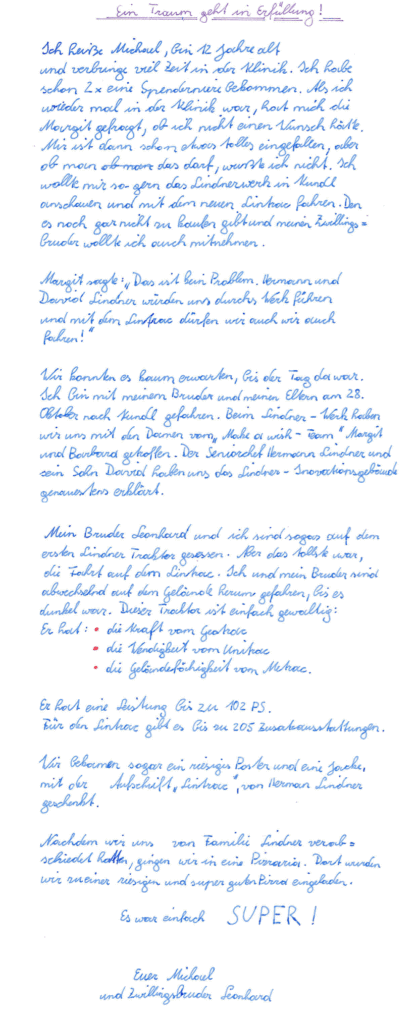 Ein Traum geht in Erfüllung!
Ich heiße Michael, bin 12 Jahre alt
und verbringe viel Zeit in der Klinik. Ich habe
schon 2x eine Spenderniere bekommen. Als ich
wieder mal in der Klinik war, hat mich die
Margit gefragt, ob ich nicht einen Wunsch hätte.
Mir ist dann schon etwas tolles eingefallen, aber
ob man ob man das darf, wußte ich nicht. Ich
wollte mir so gern das Lindnerwerk in Kundl
anschauen und mit dem neuen Lintrac fahren. Den
es noch gar nicht zu kaufen gibt und meinen Zwillings=
bruder wollte ich auch mitnehmen.
Margit sagte: „Das ist kein Problem. Hermann und
David Lindner würden uns durchs Werk führen
und mit dem Lintrac dürfen wir auch wir auch
fahren!"
Wir konnten es kaum erwarten, bis der Tag da war.
Ich bin mit meinem Bruder und meinen Eltern am 28.
Oktober nach Kundl gefahren. Beim Lindner-Werk haben
wir uns mit den Damen vom „Make a wish-Team" Margit
und Barbara getroffen. Der Seniorchef Hermann Lindner und
sein Sohn David haben uns das Lindner-Inovationsgebäude
genauestens erklärt.
Mein Bruder Leonhard und ich sind sogar auf dem
ersten Lindner Traktor gesessen. Aber das tollste war,
die Fahrt auf dem Lintrac. Ich und mein Bruder sind
abwechselnd auf dem Gelände herum gefahren, bis es
dunkel war. Dieser Traktor ist einfach gewaltig:
Er hat: • die Kraft vom Geotrac
• die Wendigheit vom Unitrac
• die Geländefähigheit vom Metrac.
Er hat eine Leistung bis zu 102 PS.
Für den Lintrac gibt es bis zu 205 Zusatzausstattungen.
Wir bekamen sogar ein riesiges Poster und eine Jacke,
mit der Aufschrift „Lintrac", von Herman Lindner
geschenkt.
Nachdem wir uns von Familie Lindner verab=
schiedet hatten, gingen wir in eine Pizzaria. Dort wurden
wir zu einer riesigen und super guten Pizza eingeladen.
Es war einfach SUPER!
Euer Michael
und Zwillingsbruder Leonhard